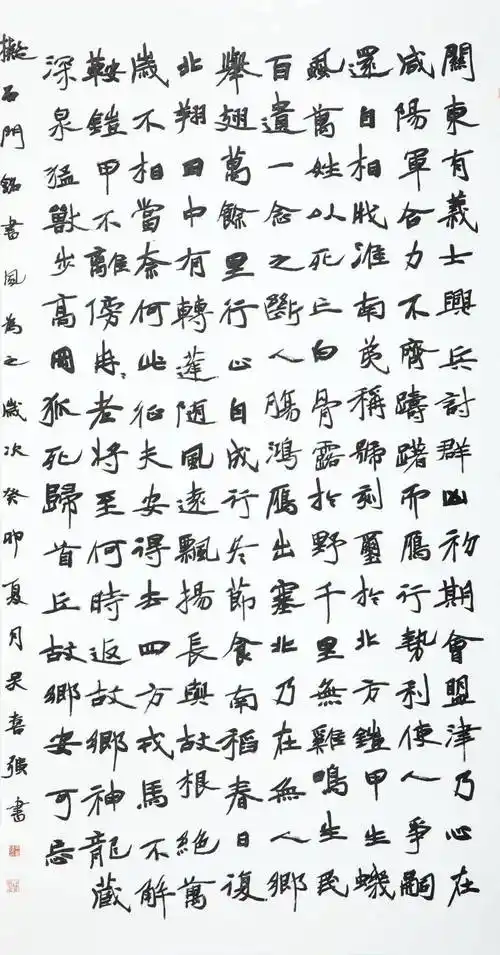 關東有義士興兵討群凶初期會盟津乃心在
咸陽軍合力不齊躊躇而鴈行勢利使人爭嗣
還自相戕淮南弟稱號刻璽於北方鎧甲生蟣
虱萬姓以死亡白骨露於野千里無雞鳴生民
百遺一念之斷人腸鴻鴈出塞北乃在無人鄉
舉翅萬餘里行止自成行冬節食南稻春日復
北翔田中有轉蓬隨風遠飄揚長與故根絕萬
歲不相當奈何此征夫安得去四方戎馬不解
鞍鎧甲不離傍冉〻老將至何時返故鄉神龍藏
深泉猛獸步高岡狐死歸首丘故鄉安可忘
擬石門銘書風為之歲次癸卯夏月吳喜強書